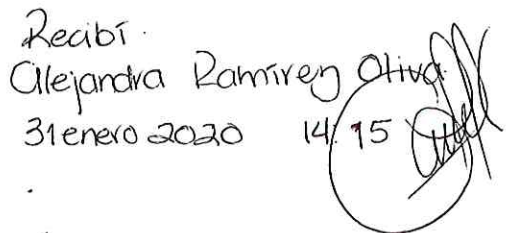 Recibí.
Alejandra Ramírez Oliva
31 enero 2020 14:15